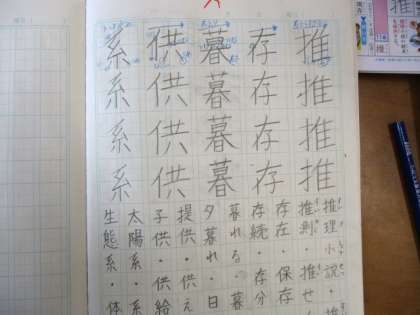 推推推推
推理小説・推
推測・推せ
存存存存
存在・保存
存続・存分
暮暮暮暮
暮れる・暮
夕暮れ・日
供供供供
提供・供え
子供・供給
系系系系
太陽系・系
生態系・体